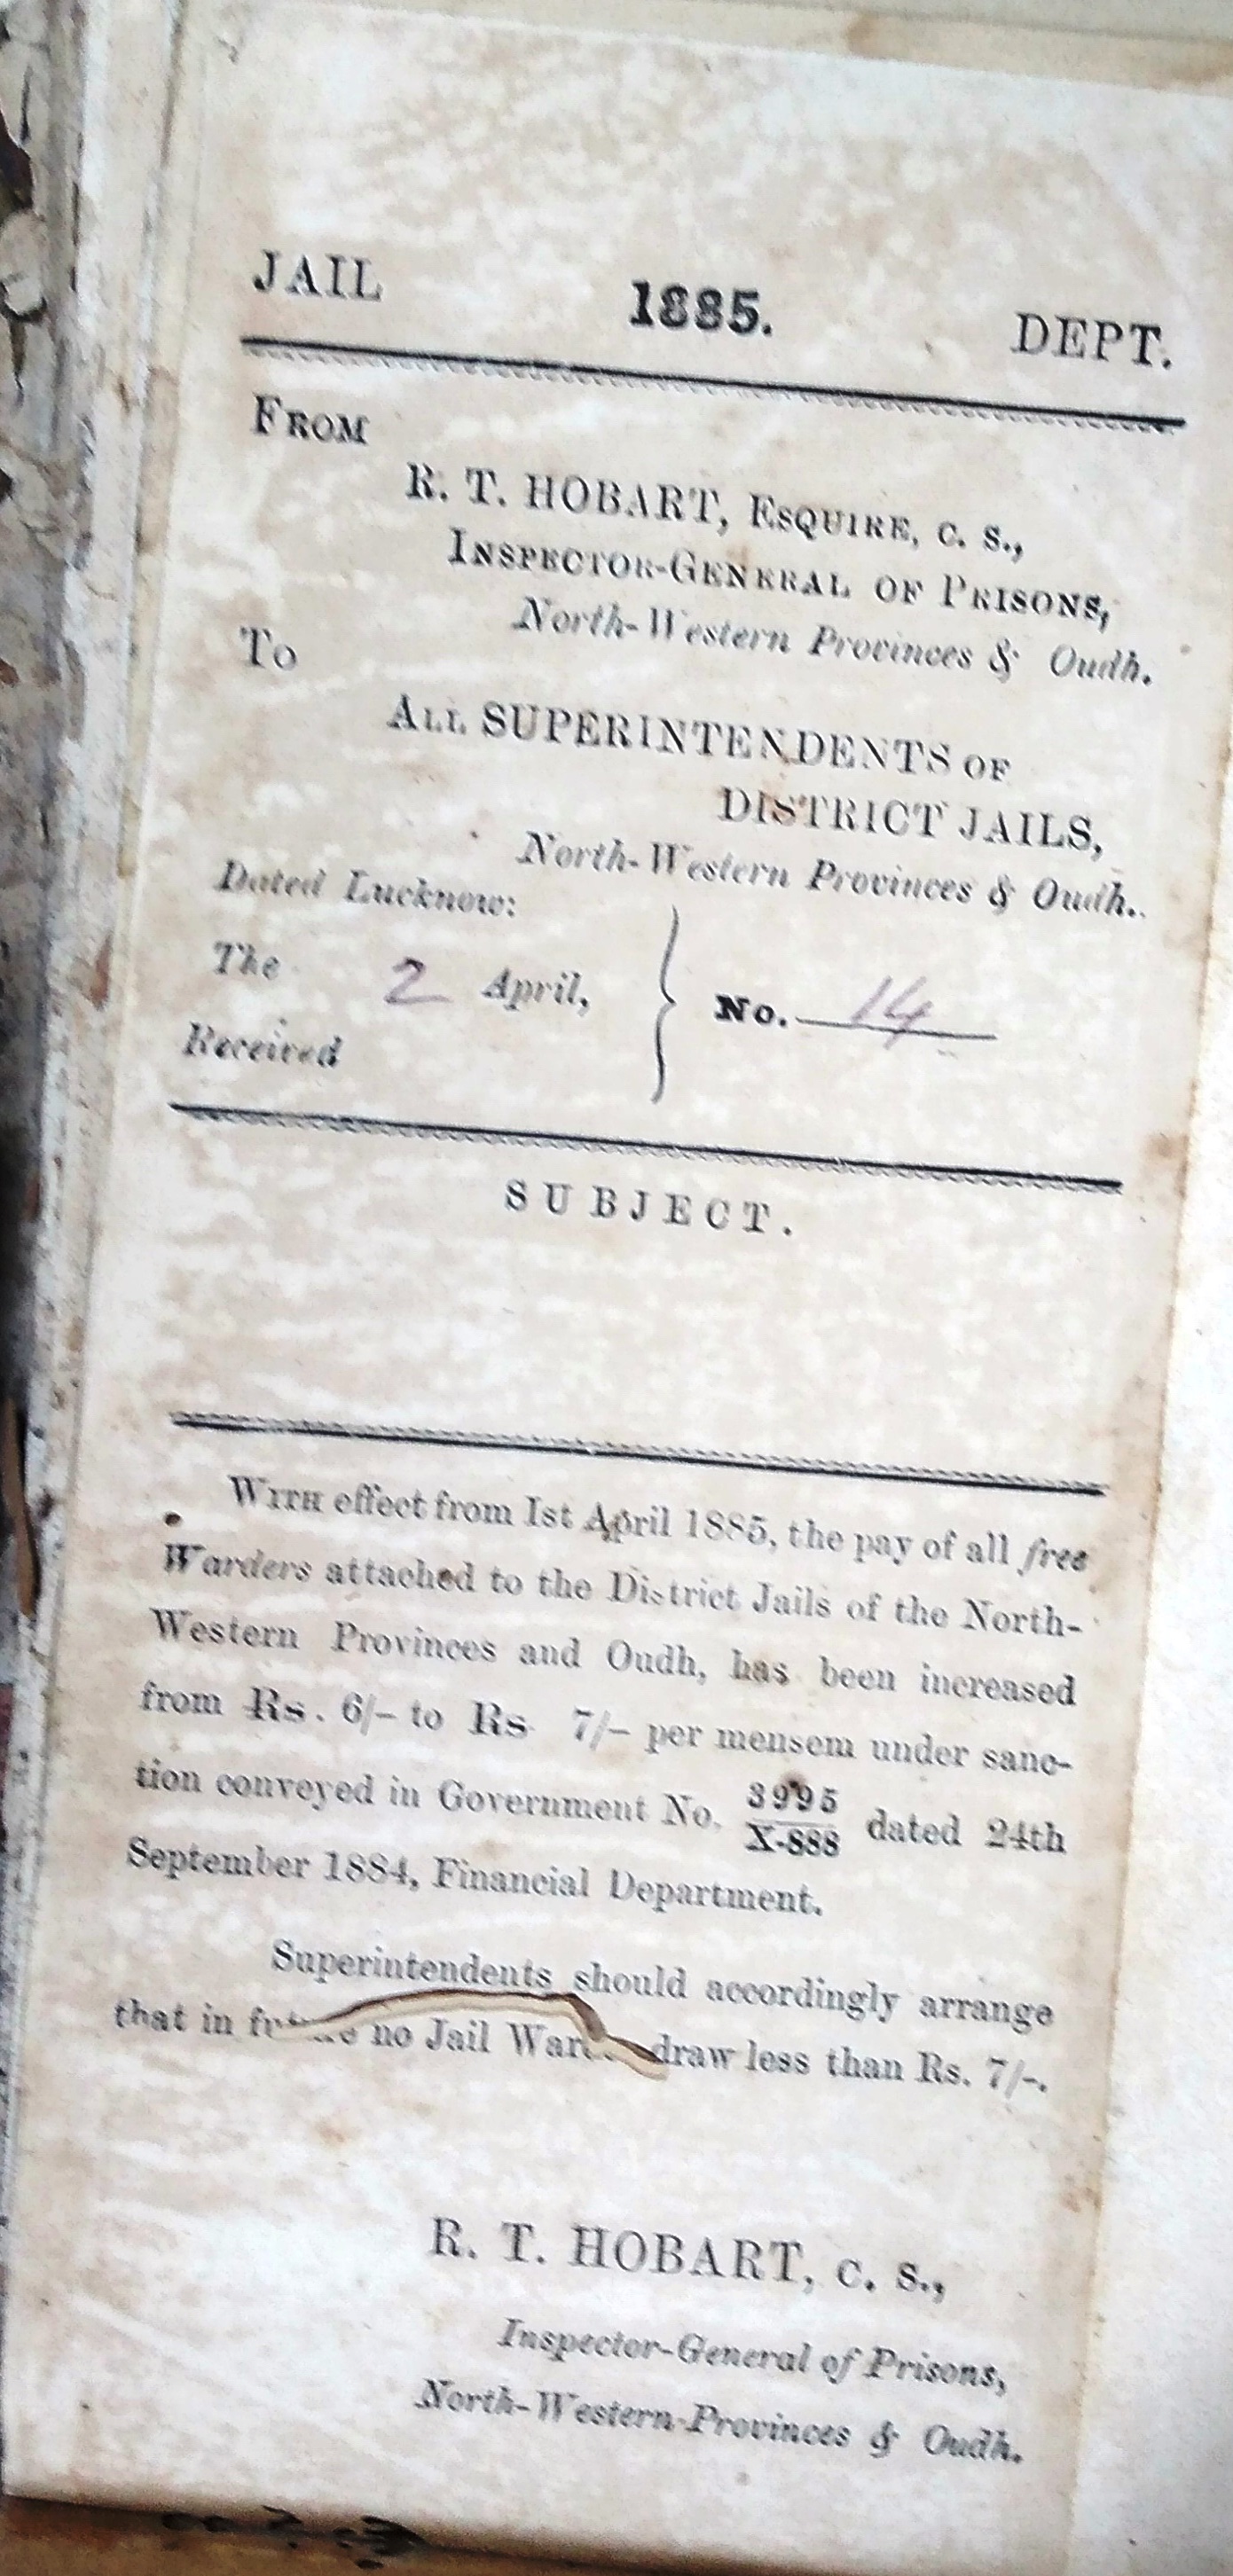 JAIL 1885. DEPT.
FROM
R. T. HOBART, ESQUIRE, C. S.,
INSPECTOR-GENERAL OF PRISONS,
North-Western Provinces & Oudh.
To
ALL SUPERINTENDENTS OF
DISTRICT JAILS,
North-Western Provinces & Oudh.
Dated Lucknow:
The 2 April,
No. 14
Received
SUBJECT.
WITH effect from 1st April 1885, the pay of all free
Warders attached to the District Jails of the North-
Western Provinces and Oudh, has been increased
from Rs. 6/- to Rs 7/- per mensem under sanc-
tion conveyed in Government No. 3995/X-888 dated 24th
September 1884, Financial Department.
Superintendents should accordingly arrange
that in no Jail draw less than Rs. 7/-.
R. T. HOBART, C. S.,
Inspector-General of Prisons,
North-Western-Provinces & Oudh.